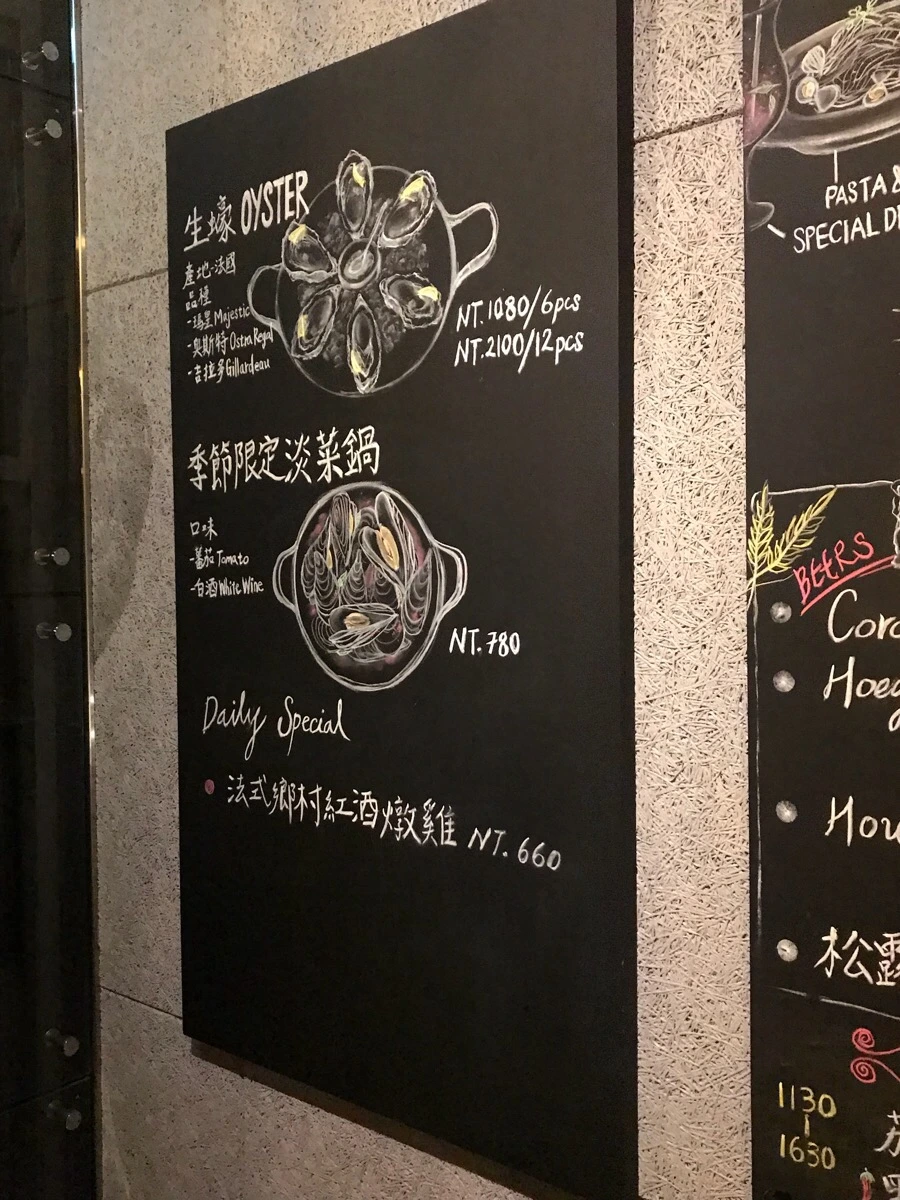 生蠔 OYSTER
產地-法國
品種
-瑪星 Majestic
-奧斯特 Ostra Regal
-吉拉多 Gillardeau
NT.1080/6pcs
NT.2100/12pcs
季節限定淡菜鍋
口味
-蕃茄 Tomato
-白酒 White Wine
NT.780
Daily Special
法式鄉村紅酒燉雞 NT. 660
PASTA &
SPECIAL
BEERS
1130
|
1630